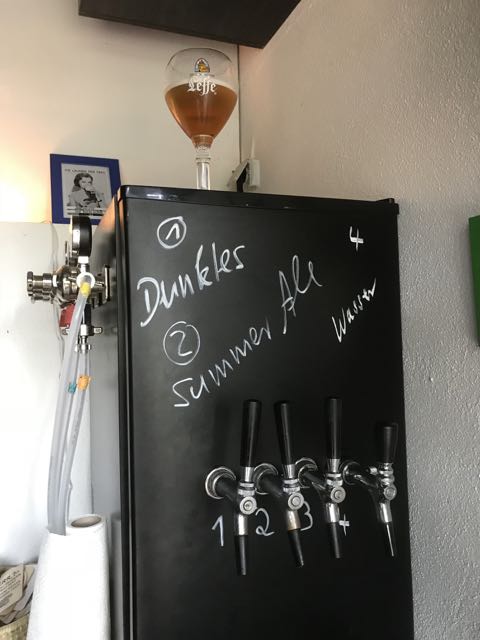 Leffe
1
Dunkles
2
Summer Ale
4
Wasser
1 2 3 4